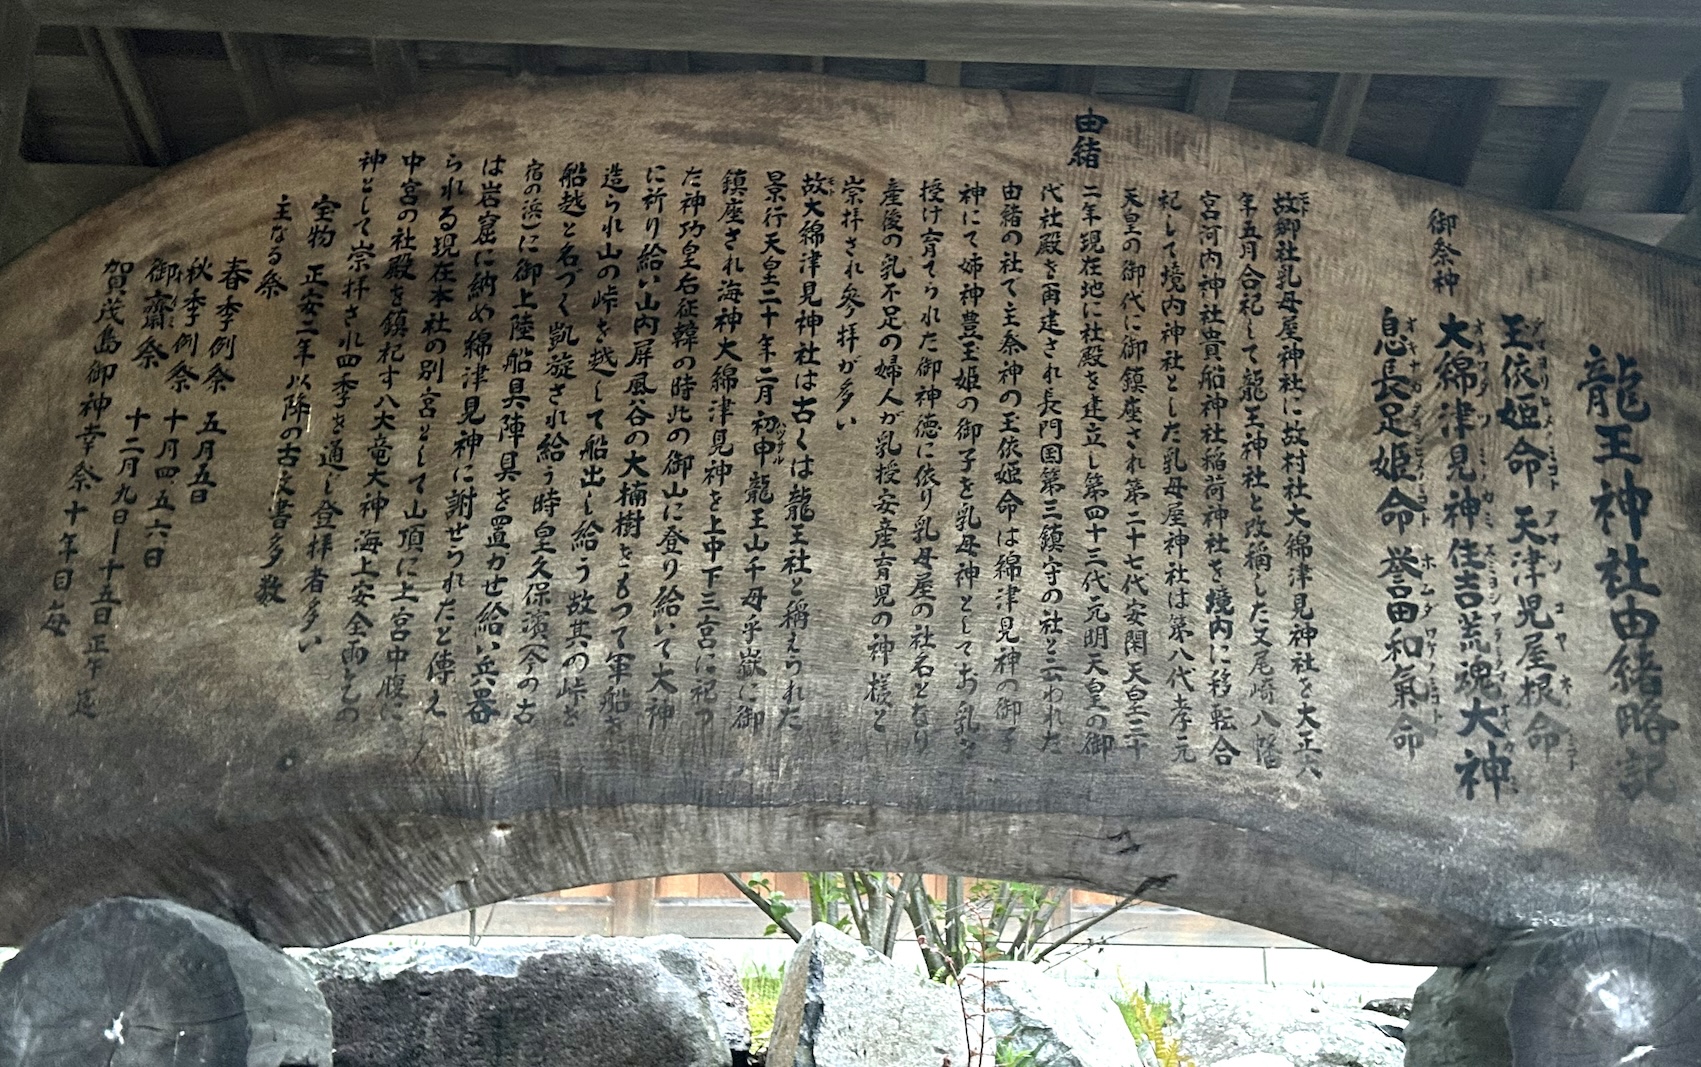 龍王神社由緒略記
御祭神
玉依姫命 天津児屋根命
大綿津見神 住吉荒魂大神
息長足姫命 誉田和氣命
由緒
故郷社乳母屋神社に故村社大綿津見神社を大正六
年五月合祀して龍王神社と改稱した又尾崎八幡
宮河内神社貴船神社稲荷神社を境内に移転合
祀して境内神社とした乳母屋神社は第八代孝元
天皇の御代に御鎮座され第二十七代安閑天皇三十
二年現在地に社殿を建立し第四十三代元明天皇の御
代社殿を再建され長門国第三鎮守の社と云われた
由緒の社て主祭神の玉依姫命は綿津見神の御子
神にて姉神豊玉姫の御子を乳母神としてお乳を
授け育てられた御神徳に依り乳母屋の社名となり
産後の乳不足の婦人が乳授安産育児の神様と
崇拝され参拝が多い
故大綿津見神社は古くは龍王社と稱えられた
景行天皇二十年二月初申龍王山千母乎嶽に御
鎮座され海神大綿津見神を上中下三宮に祀つ
た神功皇后征韓の時此の御山に登り給いて大神
に祈り給い山内屏風谷の大楠樹をもつて軍船を
造られ山の峠を越して船出し給う故其の峠を
船越と名づく凱旋され給う時皇久保濱(今の古
宿の浜)に御上陸船具陣具を置カせ給い兵器
は岩窟に納め綿津見神に謝せられたと傳え
られる現在本社の別宮として山頂に上宮中腹に
中宮の社殿を鎮祀す八大竜大神海上安全雨乞の
神として崇拝され四季を通し登拝者多い
宝物 正安二年以降の古文書多数
主なる祭
春季例祭 五月五日
秋季例祭 十月四五六日
御齋祭 十二月九日ー十五日正午迄
賀茂島御神幸祭 十年目毎